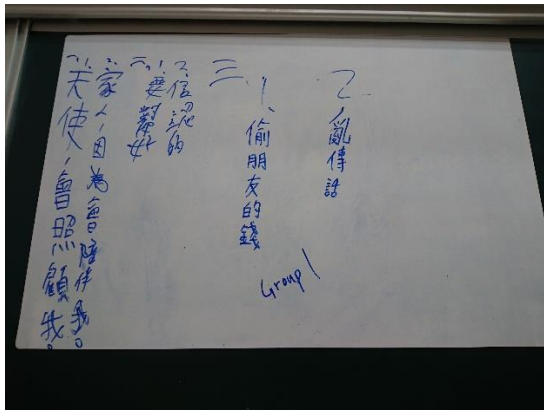 一、1、天使,會照顧我。
2、家人,因為會陪伴我。
二、1、要幫妳
2、信認的
三、1、偷朋友的錢
2、亂傳話
Group 1